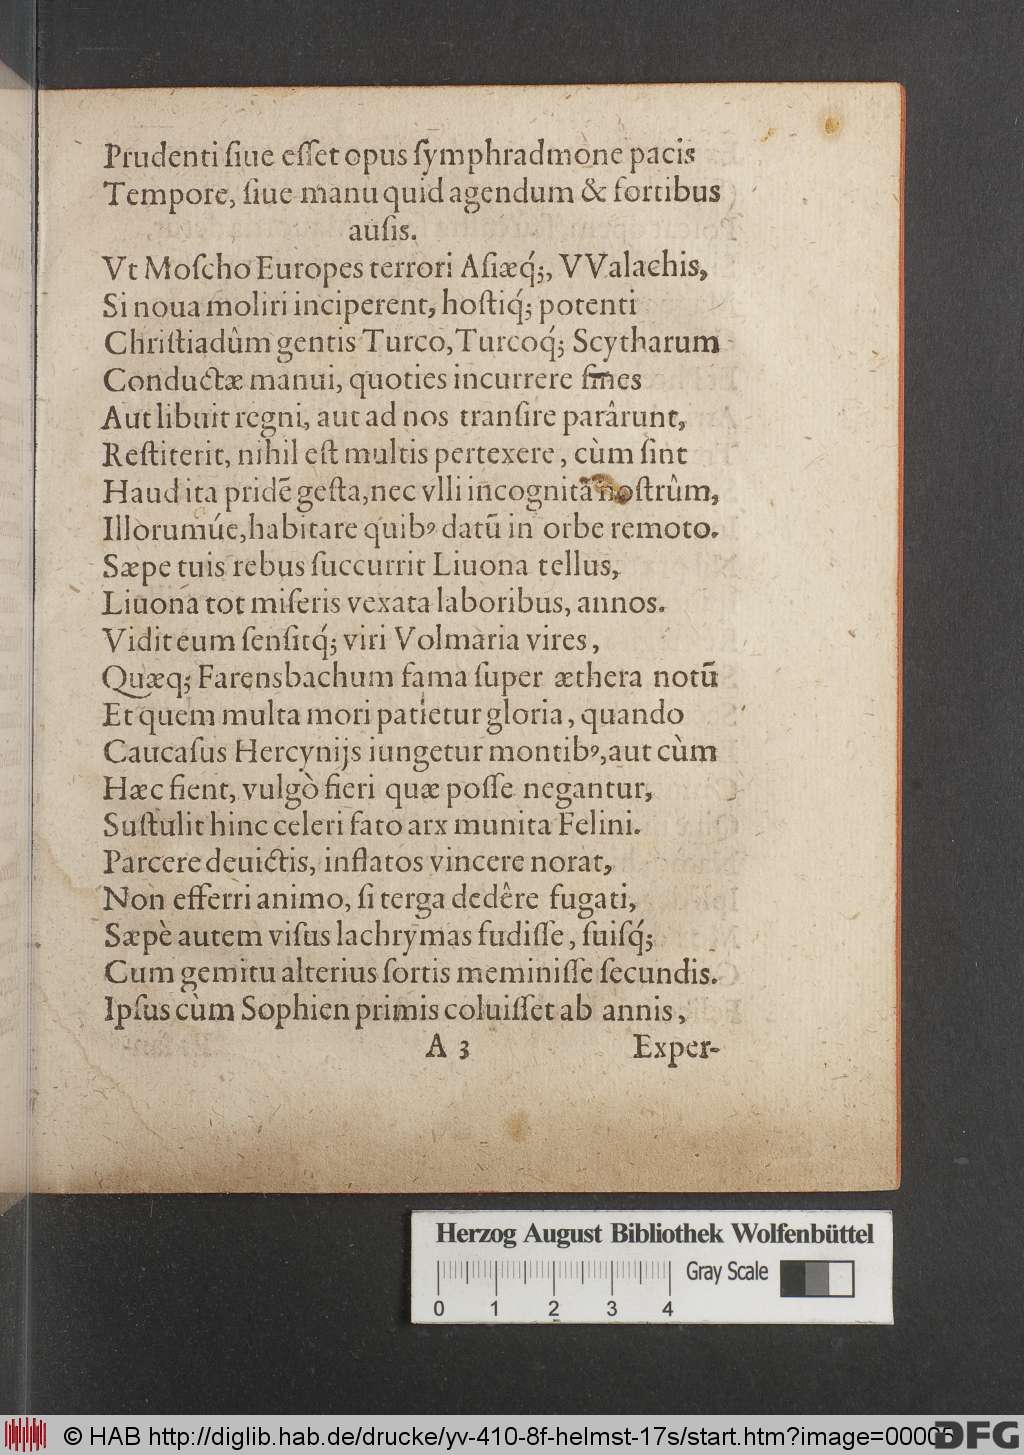 Prudenti ſiue eſſet opus ſymphradmone pacis
Tempore, ſiue manu quid agendum & fortibus
auſis.
Vt Moſcho Europes terrori Aſiæq́;, VValachis,
Si noua moliri inciperent, hoſtiq́; potenti
Chriſtiadûm gentis Turco, Turcoq́; Scytharum
Conductæ manui, quoties incurrere fines
Aut libuit regni, aut ad nos tranſire parârunt,
Reſtiterit, nihil eſt multis pertexere, cùm ſint
Haud ita pridẽ geſta, nec vlli incognita noſtrûm,
Illorumúe, habitare quibꝰ datũ in orbe remoto.
Sæpe tuis rebus ſuccurrit Liuona tellus,
Liuona tot miſeris vexata laboribus, annos.
Vidit eum ſenſitq́; viri Volmaria vires,
Quæq; Farensbachum fama ſuper æthera notũ
Et quem multa mori patietur gloria, quando
Caucaſus Hercynijs iungetur montibꝰ, aut cùm
Hæc fient, vulgò fieri quæ poſſe negantur,
Suſtulit hinc celeri fato arx munita Felini.
Parcere deuictis, inflatos vincere norat,
Non efferri animo, ſi terga dedêre fugati,
Sæpè autem viſus lachrymas fudiſſe, ſuiſq́;
Cum gemitu alterius ſortis meminiſſe ſecundis.
Ipſus cùm Sophien primis coluiſſet ab annis,
A 3 Exper-
Herzog August Bibliothek Wolfenbüttel
Gray Scale
0 1 2 3 4
© HAB http://diglib.hab.de/drucke/yv-410-8f-helmst-17s/start.htm?image=00005
DFG